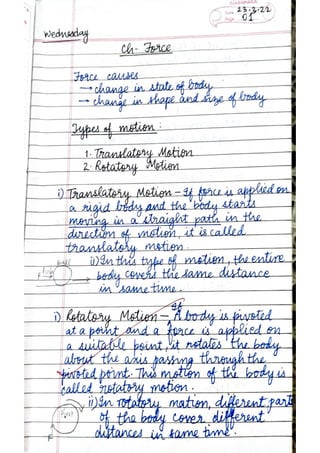 classmate
Date 23.3.22
Page 01
Wednesday
Ch- Force
Force causes
→ change in state of body
→ change in shape and size of body
Types of motion :
1. Translatory Motion
2. Rotatory Motion
i) Translatory Motion - If force is applied on
a rigid body and the body starts
moving in a straight path in the
direction of motion, it is called
translatory motion.
ii) In this type of motion, the entire
F
body covers the same distance
in same time.
If
i) Rotatory Motion - A body is pivoted
at a point and a force is applied on
a suitable point, it rotates the body
about the axis passing through the
pivoted point. This motion of the body is
called rotatory motion.
ii) In rotatory motion, different parts
of the body cover different
F
distances in same time.